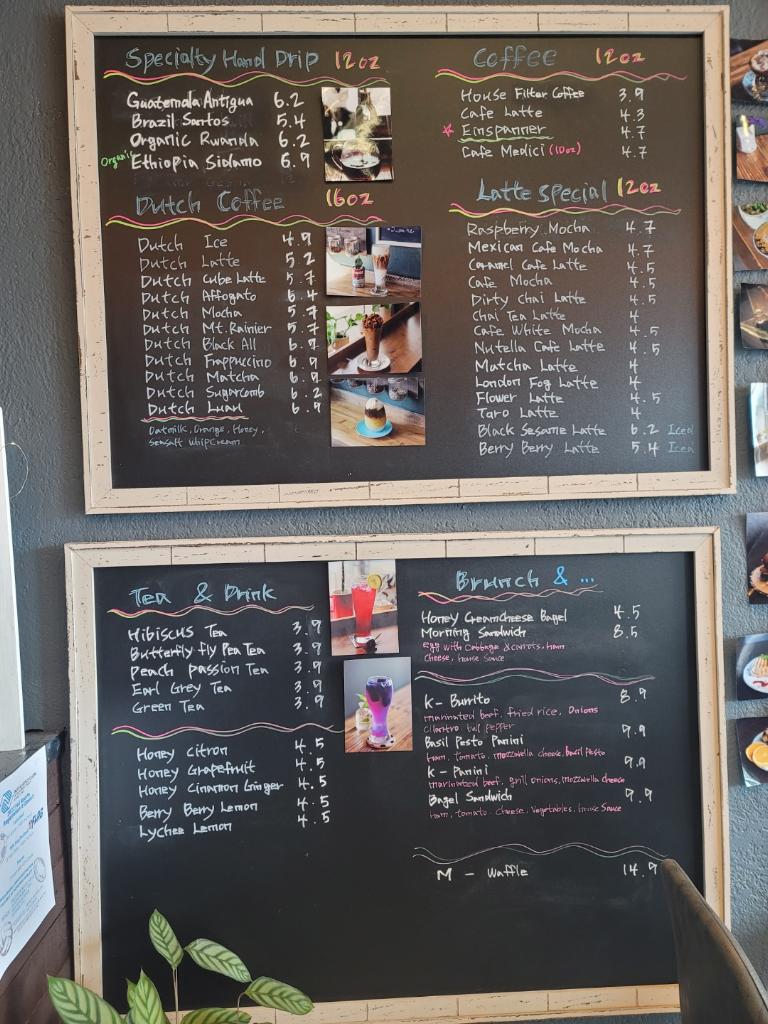 Specialty Hand Drip 12oz
Guatemala Antigua 6.2
Brazil Santos 5.4
Organic Rwanda 6.2
Organic Ethiopia Sidamo 6.9
Dutch Coffee 16oz
Dutch Ice 4.9
Dutch Latte 5.2
Dutch Cube Latte 5.7
Dutch Affogato 6.4
Dutch Mocha 5.7
Dutch Mt.Rainier 5.7
Dutch Black All
Dutch Frappuccino 6.9
Dutch Matcha
Dutch Sugarcomb 6.2
Dutch Luau 6.9
Oatmilk, Orange, Honey,
Seasalt WhipCream
Coffee 12oz
House Filter Coffee 3.9
Cafe Latte 4.3
Einspanner 4.7
Cafe Medici (10oz) 4.7
Latte special 12oz
Raspberry Mocha 4.7
Mexican Cafe Mocha 4.7
Caramel Cafe Latte 4.5
Cafe Mocha 4.5
Dirty Chai Latte 4.5
Chai Tea Latte 4
Cafe White Mocha 4.5
Nutella Cafe Latte 4.5
Matcha Latte 4
London Fog Latte 4
Flower Latte 4.5
Taro Latte 4
Black Sesame Latte 6.2 Iced
Berry Berry Latte 5.4 Iced
Tea & Drink
Hibiscus Tea 3.9
Butterfly Pea Tea 3.9
Peach passion Tea 3.9
Earl Grey Tea 3.9
Green Tea 3.9
Honey Citron 4.5
Honey Grapefruit 4.5
Honey Cinnamon Ginger 4.5
Berry Berry Lemon 4.5
Lychee Lemon 4.5
Brunch & ...
Honey CreamCheese Bagel 4.5
Morning Sandwich 8.5
Egg with Cabbage & Carrots, Ham
Cheese, House Sauce
K- Burrito 8.9
marinated beef, fried rice, Onions
Cilantro, bell pepper
Basil Pesto Panini 9.9
Ham, tomato, mozzarella cheese, basil Pesto
K- Panini 9.9
marinated beef, grill onions, mozzarella cheese
Bagel Sandwich 9.9
Ham, tomato, cheese, Vegetables, House Sauce
M - Waffle 14.9